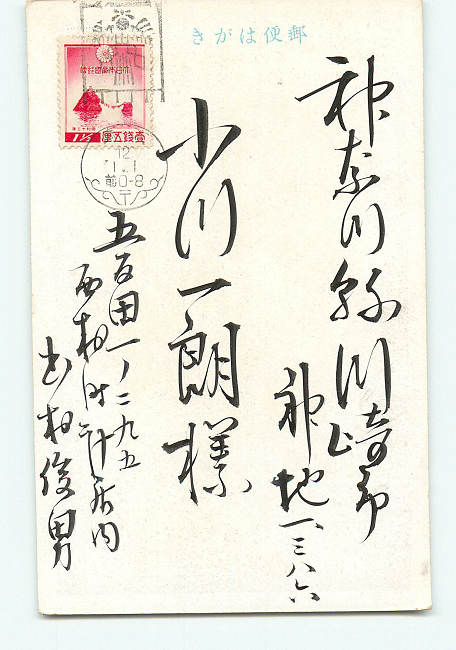 郵便はがき
神奈川縣川崎市
神地一、三八六
小川一朗様
五反田一ノ二九五
西村時計店内
西村俊男
大日本帝國郵便
壹錢五厘
1½
12
1.1
前0-8